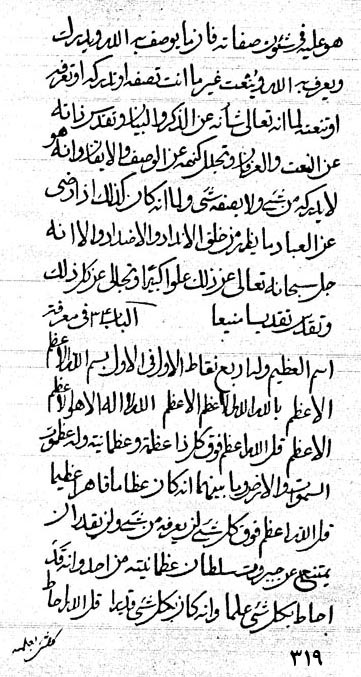 هو عليه في شئون صفاته فان ما يوصف به الله ويدرك
ويعرف به الله وينعت غير ما انت تصفه او تدركه او تعرفه
او تنعته لما انه تعالى شأنه عن الذكر والبيان وتقدس ذاته
عن النعت والعرفان وتجلل كنهه عن الوصف والايقان وانه هو
لا يدركه من شيء ولا يصفه شيء ولما انه كان كذلك اذا رضى
عن العباد ما يقدر من خلق الانداد والاضداد والا انه
جل سبحانه تعالى عن ذلك علوا كبيرا وتجالى عن كل ذلك
وتقدس تقديسا منيعا الباب في معرفة
اسم العظيم وله اربع نقاط الاول في الاول بسم الله الاعظم
الاعظم بالله الله الاعظم الاعظم الله لا اله الا هو الاعظم
الاعظم قل الله اعظم فوق كل ذا عظمة وعظمانية وله عظموت
السموات والارض وما بينهما انه كان عظاما قاهرا عظيما
قل الله اعظم فوق كل شيء لن يعرفه من شيء ولن يقدر ان
يمتنع عن جبروت سلطان عظمانيته من احد وانه قد
احاط بكل شيء علما وانه كان بكل شيء قديرا قل الله احاط
٣١٩